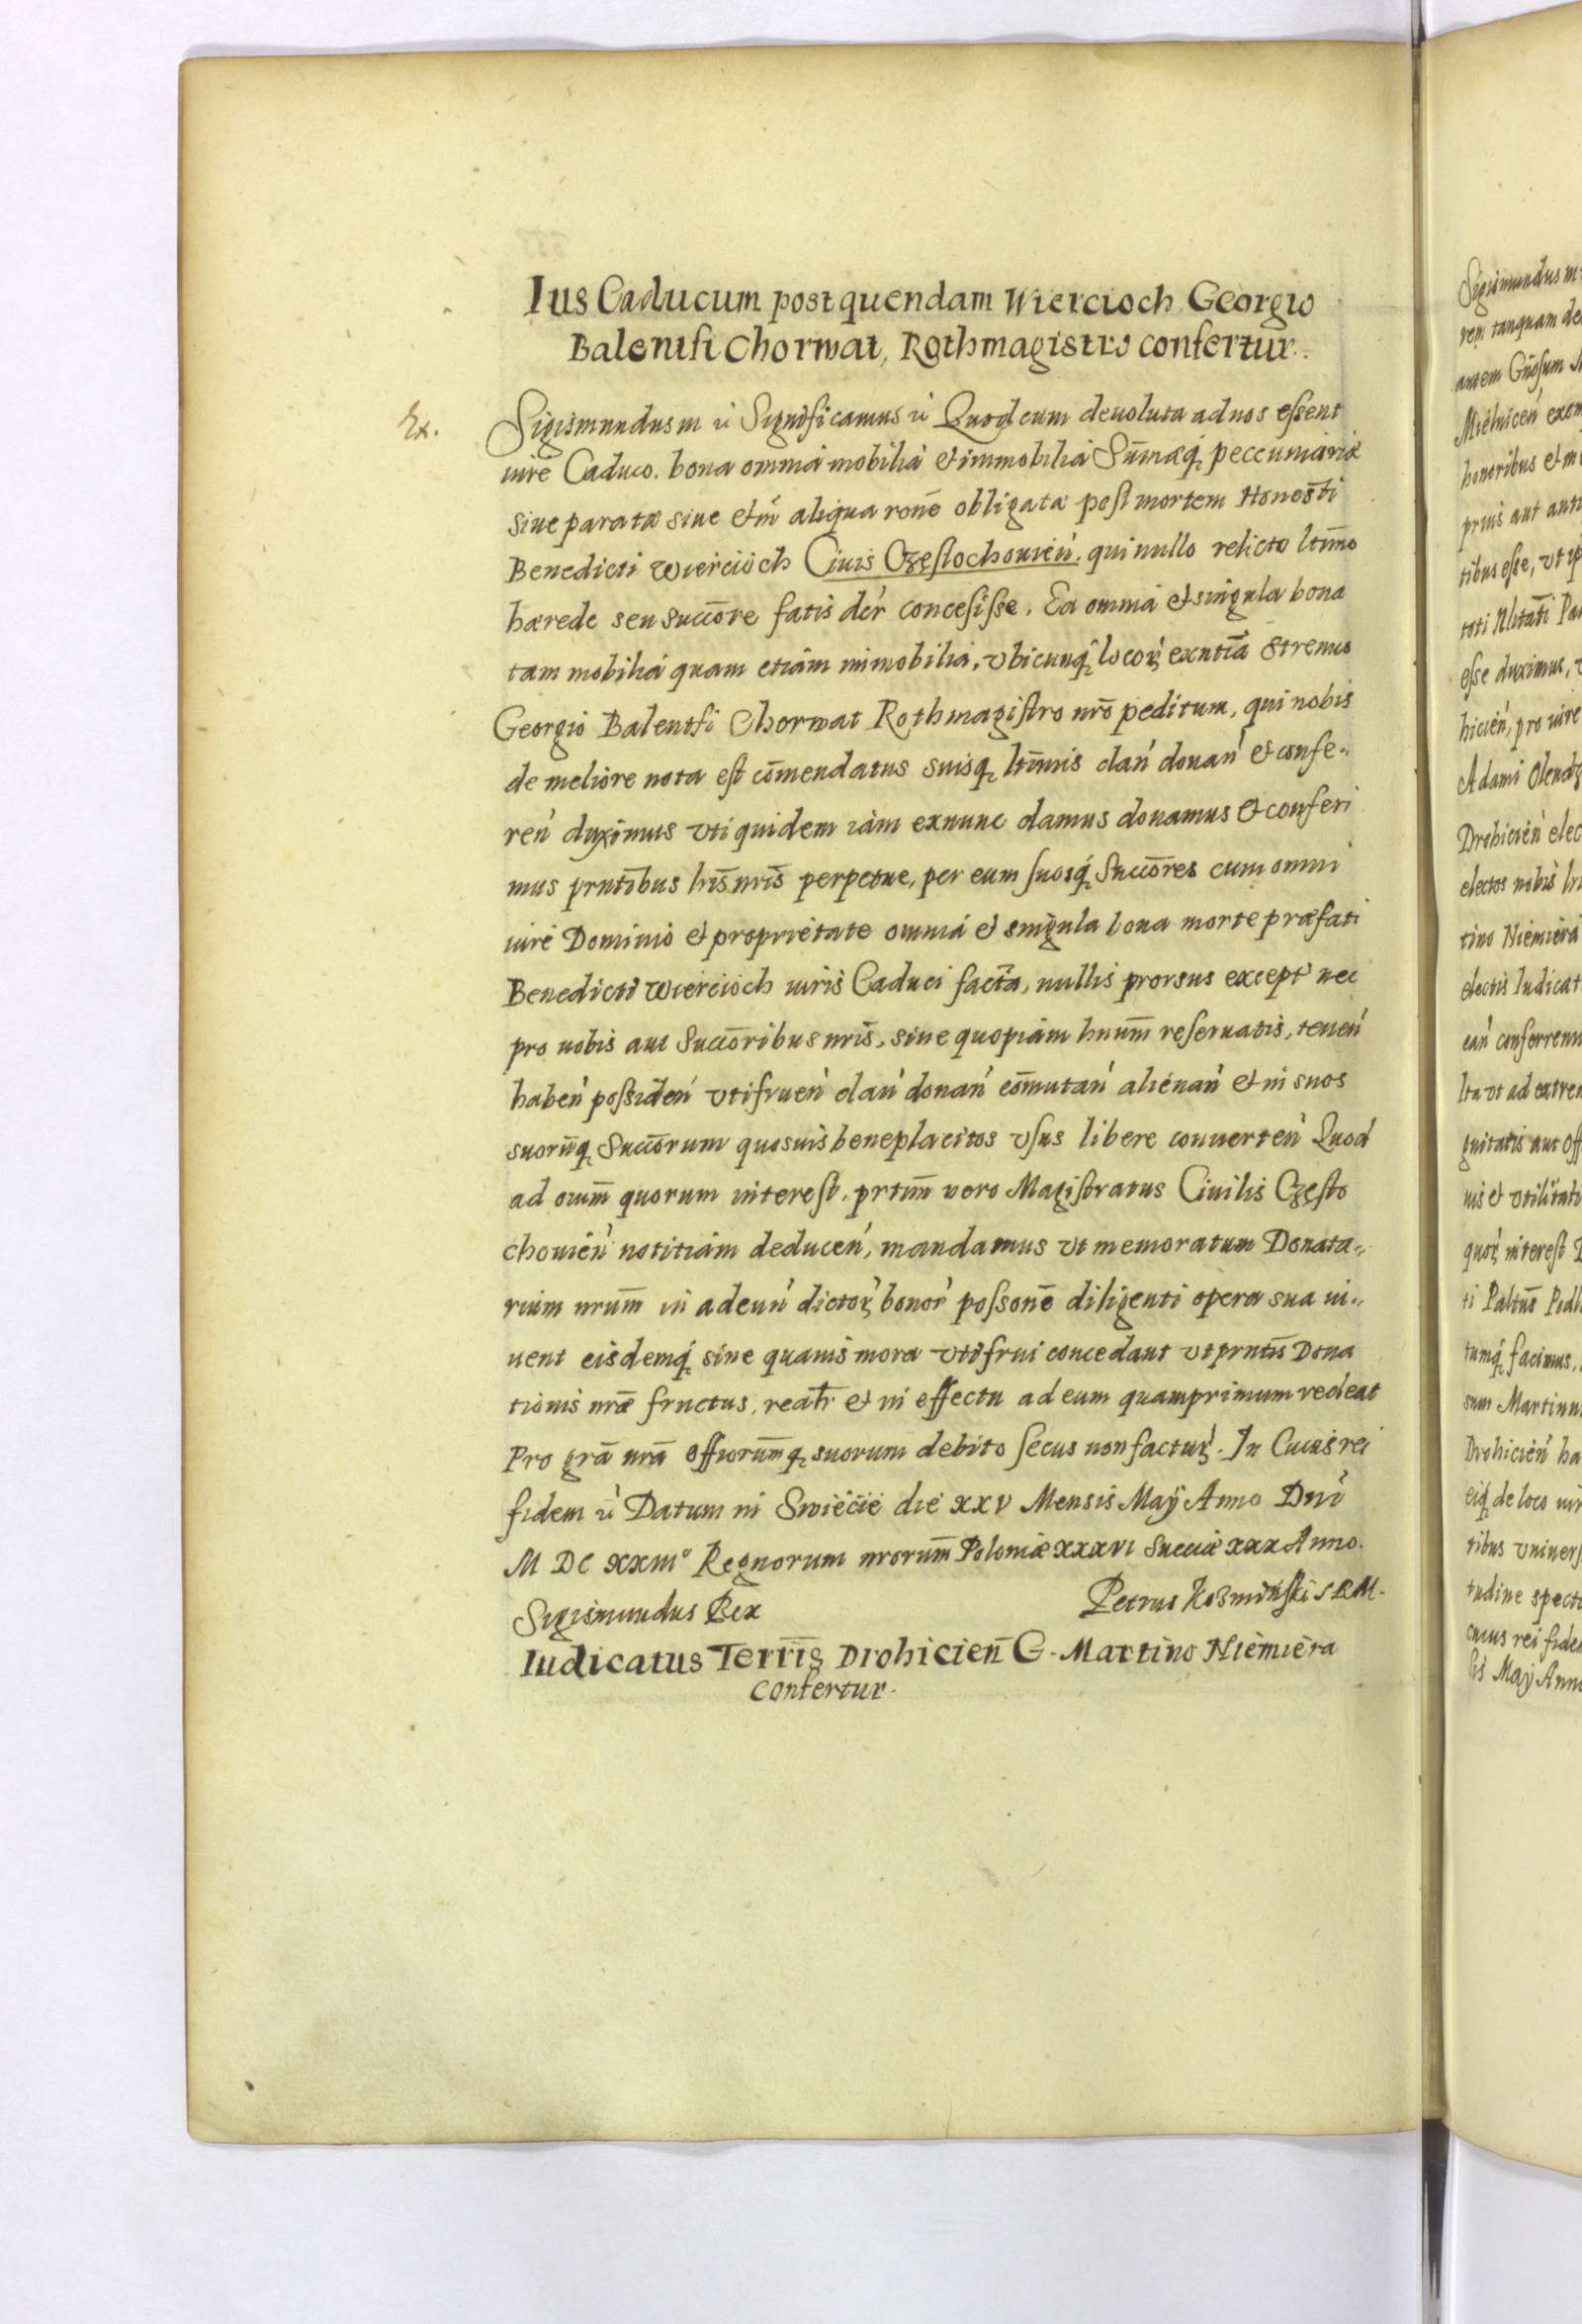 Ius Caducum post quendam Wiercioch Georgio
Balentsi Chorwat, Rothmagistro confertur.
Ex.
Sigismundus III ũ Significamus ũ Quod cum deuoluta ad nos essent
iure Caduco. bona omnia mobilia et immobilia Sum̃aeq; peccuniariæ
siue paratæ siue et in aliqua ronē obligatæ post mortem Honesti
Benedicti Wiercioch Ciuis Częstochouień. qui nullo relicto ltimō
hærede seu Succōre fatis der concesisse. Ea omnia et singula bona
tam mobilia quam etiam immobilia, vbicunq; locoꝝ exntiā Strenuo
Georgio Balentsi Chorwat Rothmagistro nrō peditum, qui nobis
de meliore nota est cōmendatus suisq; ltimīs dań donań et confe„
reń duximus vti quidem iam exnunc damus donamus et conferi
mus prntībus lris̄ nris̄ perpetue, per eum suosq; Succōres cum omni
iure Dominio et proprietate omnia et singula bona morte præfati
Benedicti Wiercioch iuris Caduci facta, nullis prorsus except nec
pro nobis aut Succōribus nris̄, siue quopiam hnum̄ reseruatis, teneń
habeń possideń vtifrueń dań donań cōmutań alienań et in suos
suorūq; Succōrum quosuis beneplacitos vsus libere conuerteń Quod
ad onium̄ quorum interest, prtim̄ vero Magistratus Ciuilis Często
chouień notitiam deduceń, mandamus vt memoratum Donata„
rium nrum̄ in adeuń dictoꝝ bonor possonē diligenti opera sua iu„
uent eisdemq; sine quauis mora vtifrui concedant vt prntis̄ Dona
tionis nrǣ fructus, realr̄ et in effectu ad eum quamprimum redeat
Pro grā nrā offiorum̄q; suorum debito secus non factuꝝ. In Cuius rei
fidem ũ Datum in Swiecie die XXV Mensis Maÿ Anno Dni
M DC XXIIIº Regnorum nrorum̄ Poloniæ XXXVI Sueciæ XXX Anno.
Sigismundus Rex Petrus Kosmiński S R M.
Iudicatus Terris̄ Drohicień G. Martino Niemiera
Confertur.
Sigismundus III
rem tanquam de
autem Gnōsum
Mielniceń exem
honoribus et
prius aut
tibus esse, vt
toti Nlitāti
esse duximus,
hicień, pro iure
Adami
Drohicień elec
electos nobis
tino Niemiera
electis Iudicat
eań conferrem
Ita vt ad extrem
gnitatis aut Off
nis et vtilitati
quoꝝ interest
ti Paltūs Podl
tumq; facimus,
sum Martinum
Drohicień ha
eiq; de loco
tibus vniuers
tudine specta
cuius rei fidem
sis Maÿ Anno